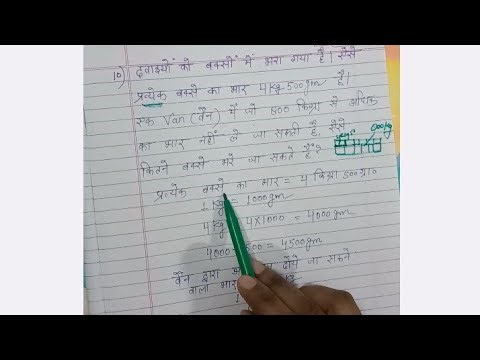 10) दवाइयों को बक्सों में भरा गया है। ऐसे
प्रत्येक बक्से का भार 4kg 500gm है।
एक Van (वैन) में जो 800 किग्रा से अधिक
का भार नहीं ले जा सकती है, ऐसे
कितने बक्से भरे जा सकते हैं?
प्रत्येक बक्से का भार = 4 किग्रा 500 ग्रा०
1 kg = 1000gm
4 kg 4×1000 = 4000gm
4000 500 = 4500gm
वैन द्वारा ढोये जा सकने
वाला भार